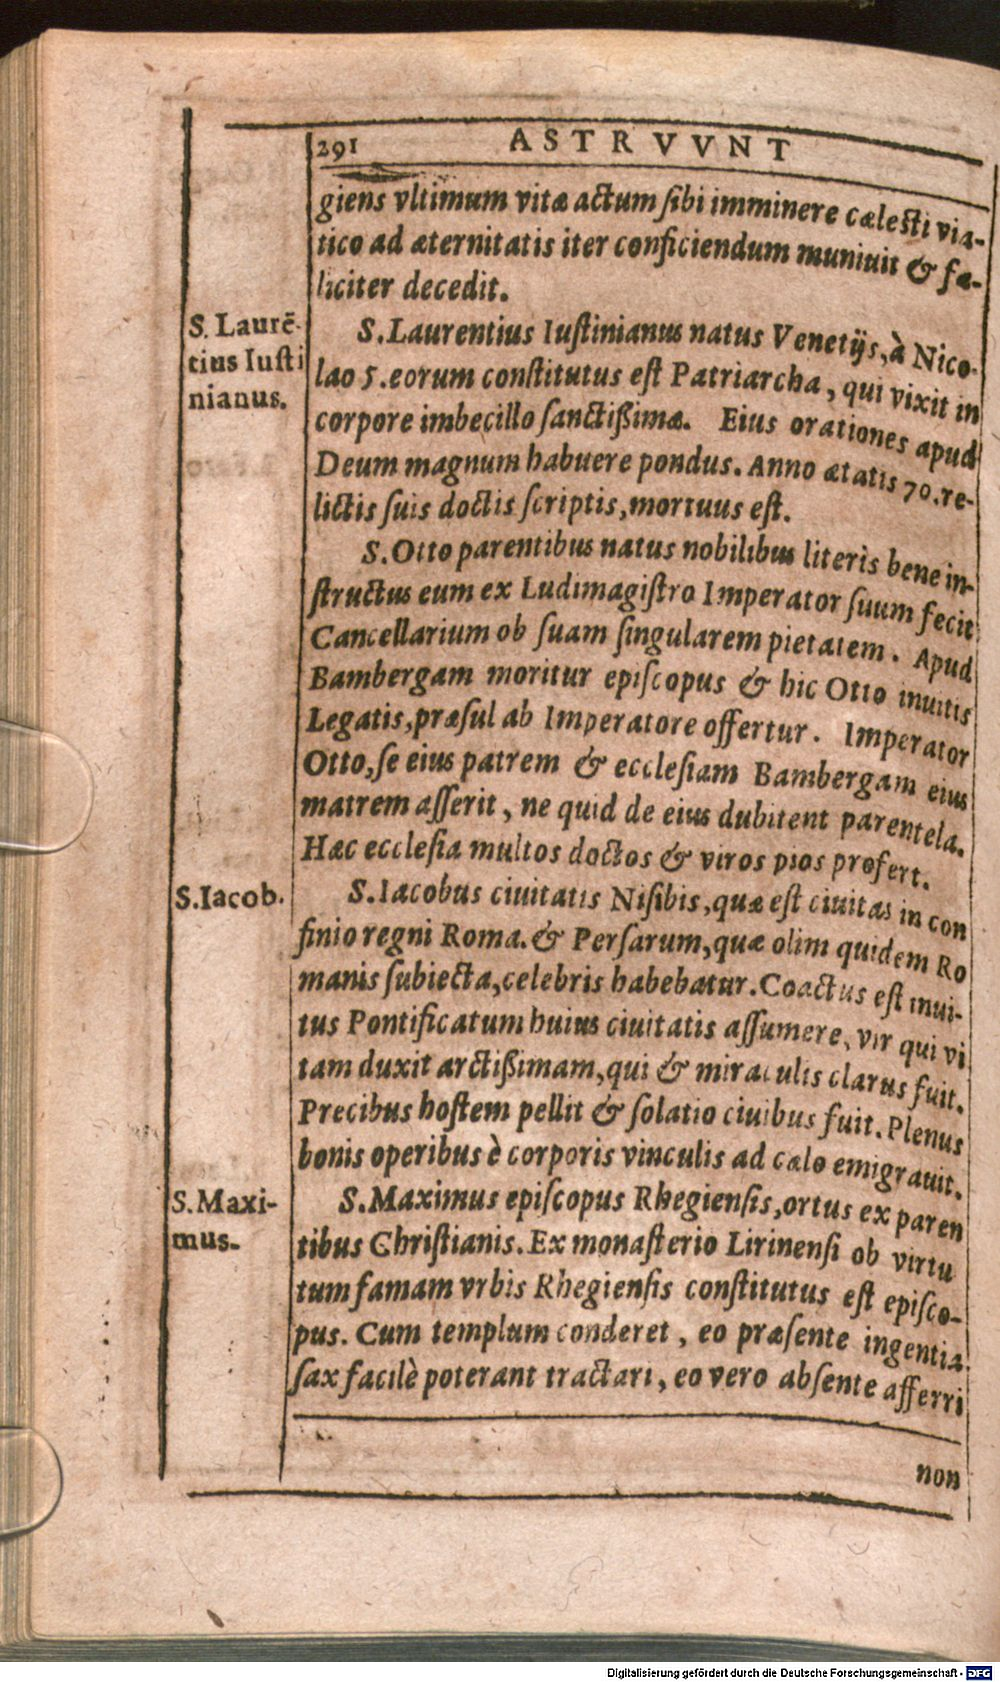 291 ASTRVVNT
giens vltimum vitæ actum sibi imminere cælesti via-
tico ad æternitatis iter conficiendum muniuit & fæ-
liciter decedit.
S. Laurē-
tius Iusti
nianus.
S. Laurentius Iustinianus natus Venetijs, à Nico-
lao 5. eorum constitutus est Patriarcha, qui vixit in
corpore imbecillo sanctißimæ. Eius orationes apud
Deum magnum habuere pondus. Anno ætatis 70. re-
lictis suis doctis scriptis, mortuus est.
S. Otto parentibus natus nobilibus literis bene in-
structus eum ex Ludimagistro Imperator suum fecit
Cancellarium ob suam singularem pietatem. Apud
Bambergam moritur episcopus & hic Otto inuitis
Legatis, præsul ab Imperatore offertur. Imperator
Otto, se eius patrem & ecclesiam Bambergam eius
matrem asserit, ne quid de eius dubitent parentela.
Hæc ecclesia multos doctos & viros pios profert.
S. Iacob.
S. Iacobus ciuitatis Nisibis, quæ est ciuitas in con
finio regni Roma. & Persarum, quæ olim quidem Ro
manis subiecta, celebris habebatur. Coactus est inui-
tus Pontificatum huius ciuitatis assumere, vir qui vi
tam duxit arctißimam, qui & miraculis clarus fuit.
Precibus hostem pellit & solatio ciuibus fuit. Plenus
bonis operibus è corporis vinculis ad cælo emigrauit.
S. Maxi-
mus.
S. Maximus episcopus Rhegiensis, ortus ex paren
tibus Christianis. Ex monasterio Lirinensi ob virtu
tum famam vrbis Rhegiensis constitutus est episco-
pus. Cum templum conderet, eo præsente ingentia
sax facilè poterant tractari, eo vero absente afferri
non
Digitalisierung gefördert durch die Deutsche Forschungsgemeinschaft - DFG